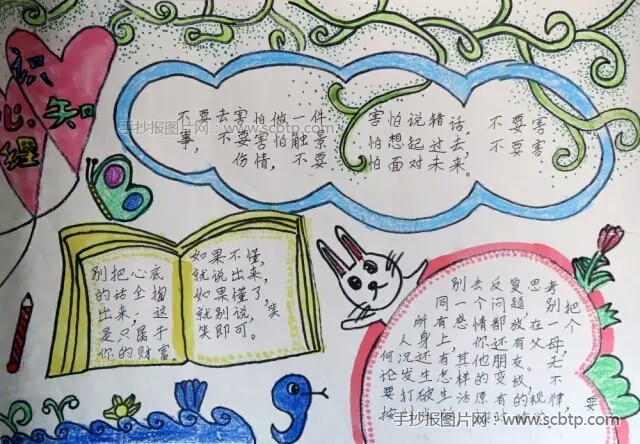 心理知识
手抄报图片网：www.scbtp.com
不要去害怕做一件
事，不要害怕触景
伤情，不要
害怕说错话，不要害
怕想起过去，不要害
怕面对未来。
别把心底
的话全掏
出来，这
是只属于
你的财富。
如果不懂，
就说出来，
如果懂了，
就别说，笑
笑即可。
别去反复思考
同一个问题，别把
所有感情都放在一个
人身上，你还有父母，
何况还有其他朋友。无
论发生怎样的变故，不
要打破生活原有的规律
手抄报图片网：www.scbtp.com